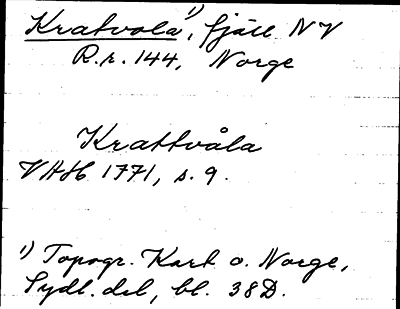 Kratvola¹⁾, fjäll NV
R.r. 144, Norge
Krattvåla
VAH 1771, s. 9.
¹⁾ Topogr. Kart o. Norge,
Sydl. del, bl. 38D.